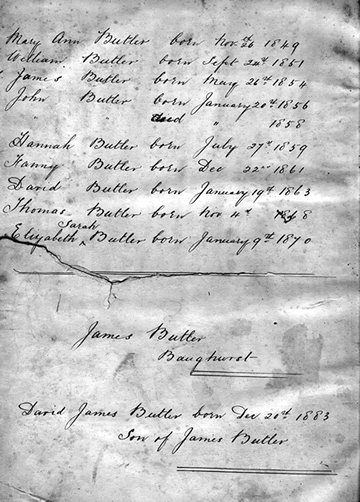 Mary Ann Butler born Nov 26th 1849
William Butler born Sept 24th 1851
James Butler born May 26th 1854
John Butler born January 20th 1856
" " died " 1858
Hannah Butler born July 27th 1859
Fanny Butler born Dec 22nd 1861
David Butler born January 19th 1863
Thomas Butler born Nov 4th 8
Elizabeth Sarah Butler born January 9th 1870
James Butler
Baughurst
David James Butler born Dec 20th 1883
Son of James Butler